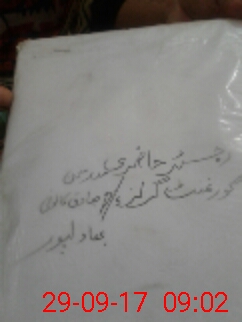 رجسٹر حاضری مدرسین
گورنمنٹ گرلز ہائی صادق کالونی
بہاولپور
29-09-17 09:02